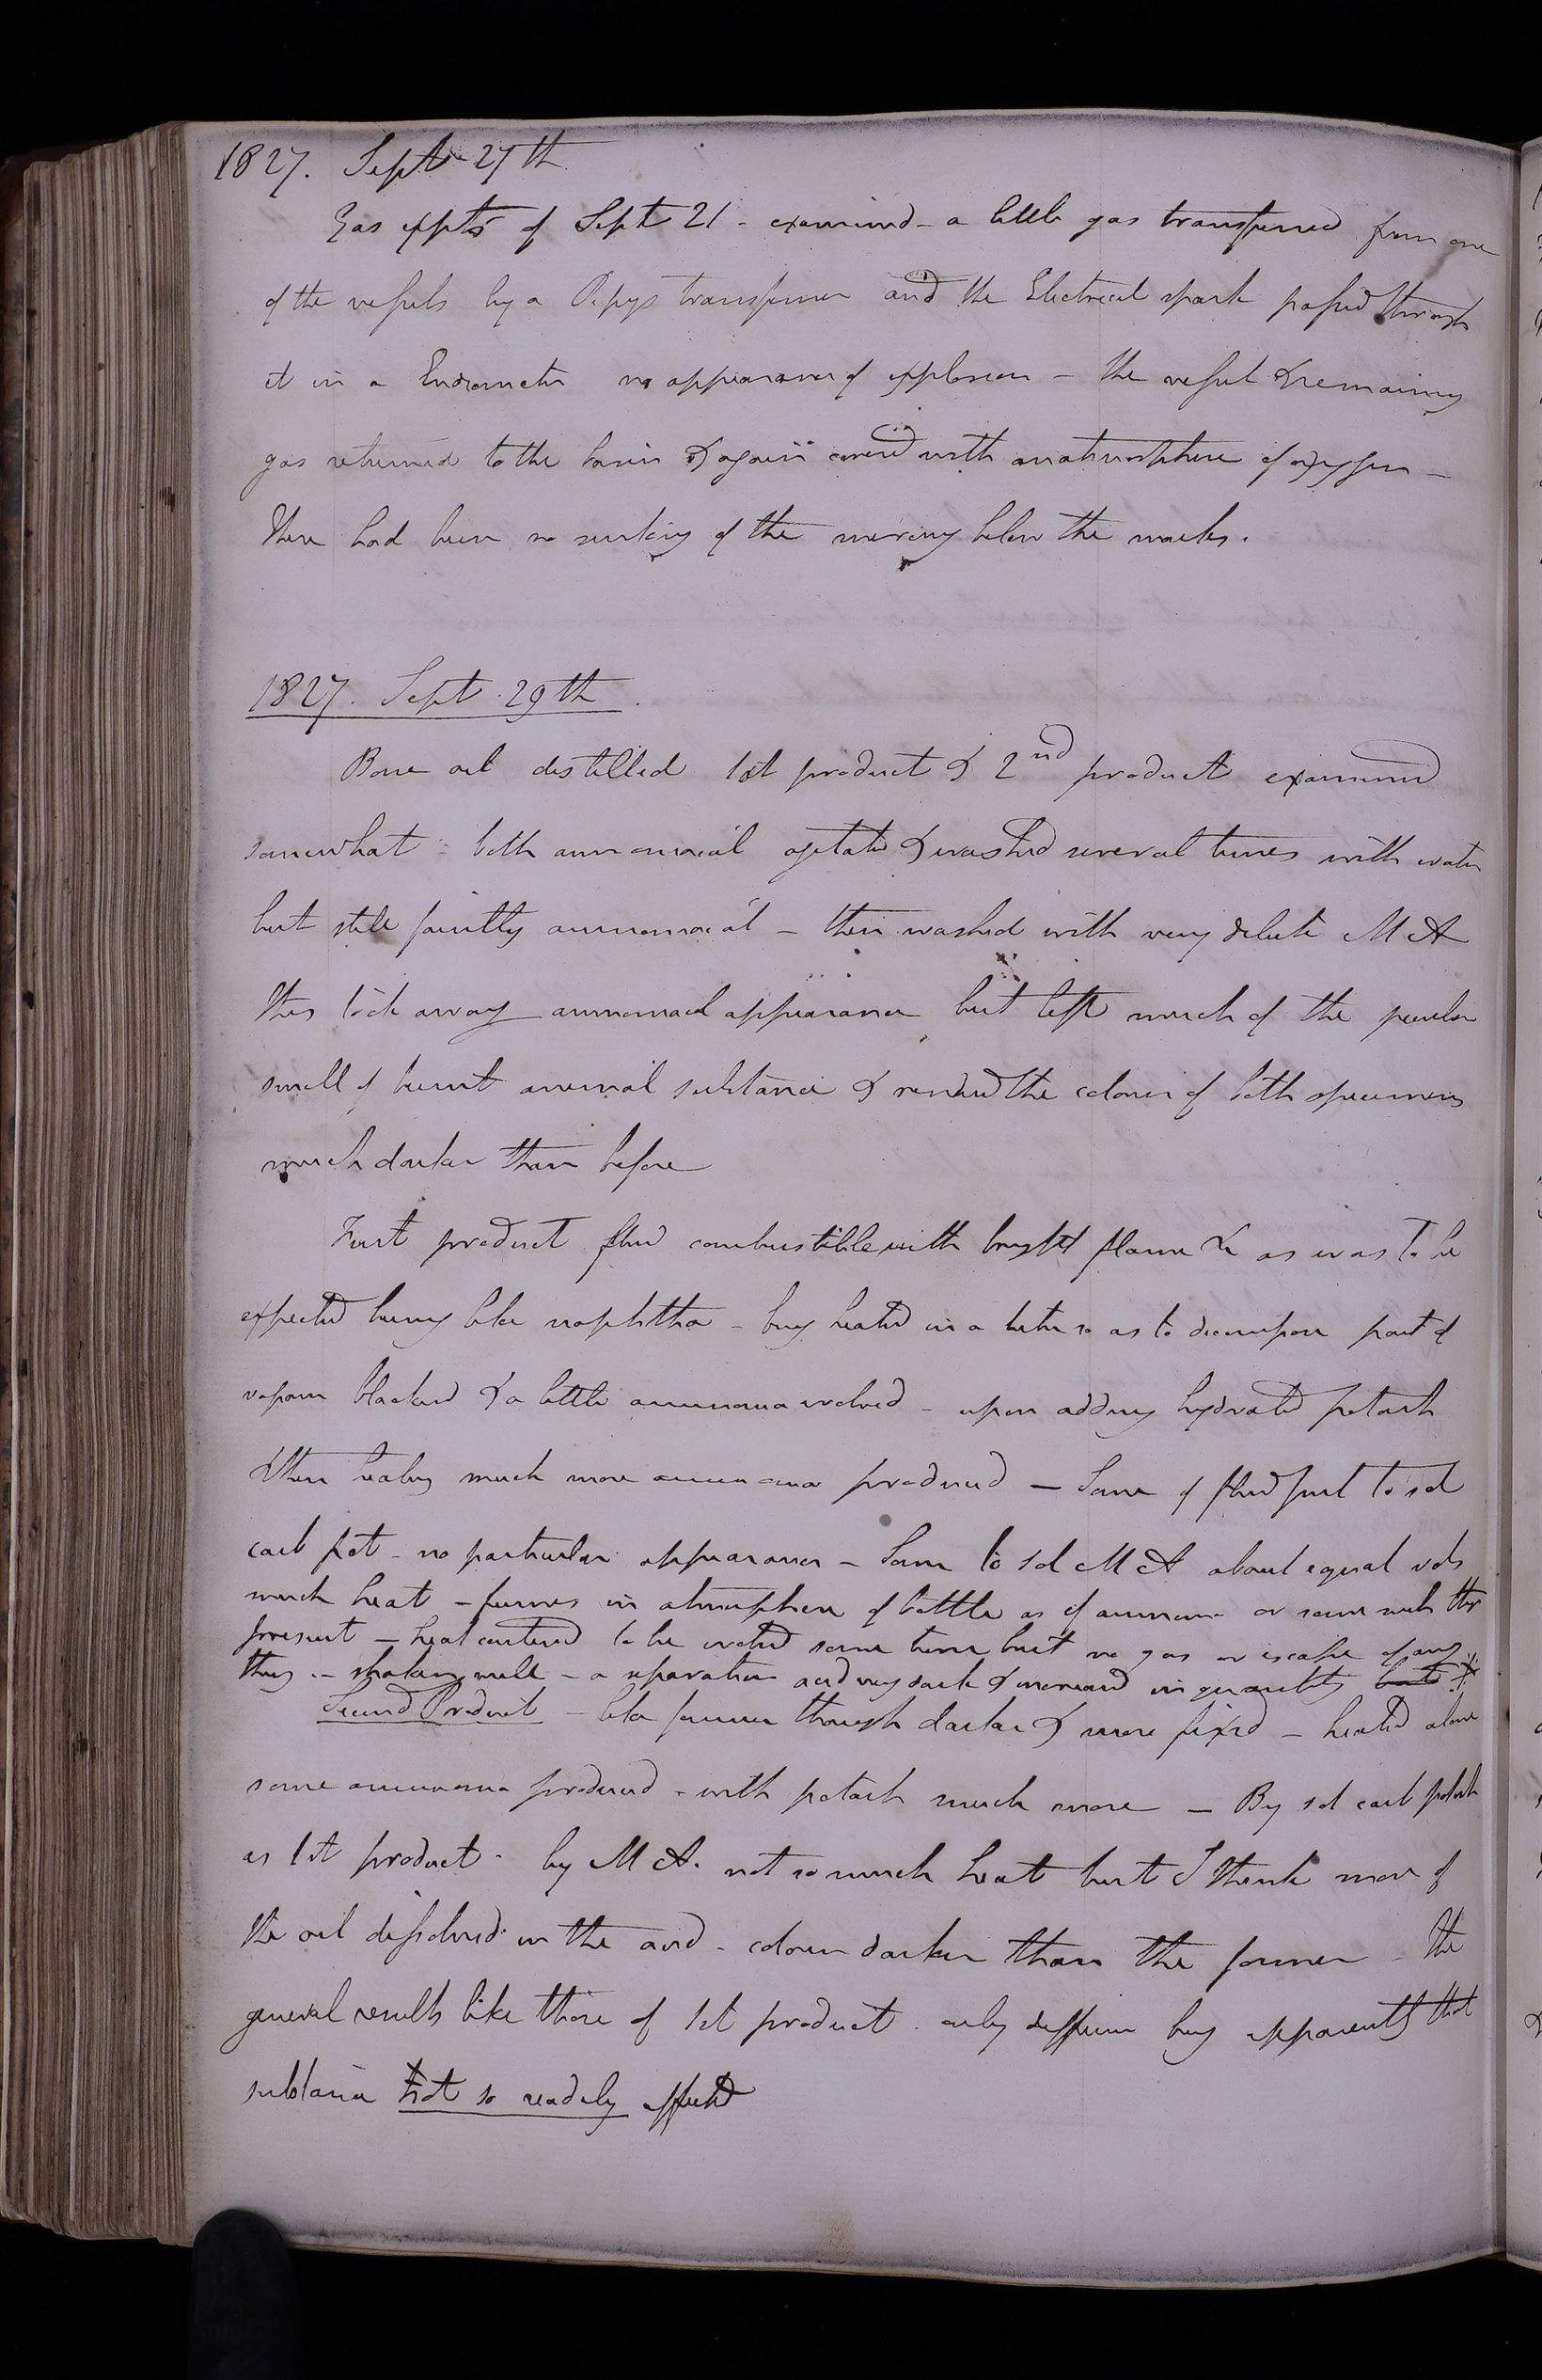 1827. Sept 27th
Gas expts of Sept 21 - examined - a little gas transferred from one
of the vessels by a Pepys transferrer and the Electrical spark passed through
it in a Eudiometer no appearance of explosion - the vessel & remaining
gas returned to the basin & again covered with an atmosphere of oxygen -
There had been no sinking of the mercury below the marks.
1827. Sept. 29th.
Bone oil distilled 1st product & 2nd product examined
somewhat - both ammoniacal agitated & washed several times with water
but still faintly ammoniacal - then washed with very dilute M A
this took away ammoniacal appearance but left much of the peculiar
smell of burnt animal substance & rendered the colour of both specimens
much darker than before
First product fluid combustible with bright flame &c as was to be
expected being like naphtha - being heated in a tube so as to decompose part of
vapour blackened & a little ammonia evolved - upon adding hydrated potash
& then heating much more ammonia produced - Some of fluid put to sol
carb pot - no particular appearance - Some to sol M A about equal vols
much heat - fumes in atmosphere of bottle as if ammonia or some such thing
present - heat continued to be evolved some time but no gas or escape of any
thing - shaken well - a separation acid very dark & increased in quantity
Second Product - like former though darker & more fixed - heated alone
some ammonia produced - with potash much more - By sol carb potash
as 1st product - by M A. not so much heat but I think more of
the oil dissolved in the acid - colour darker than the former - the
general results like those of 1st product. only difference being apparently that
substance not so readily affected